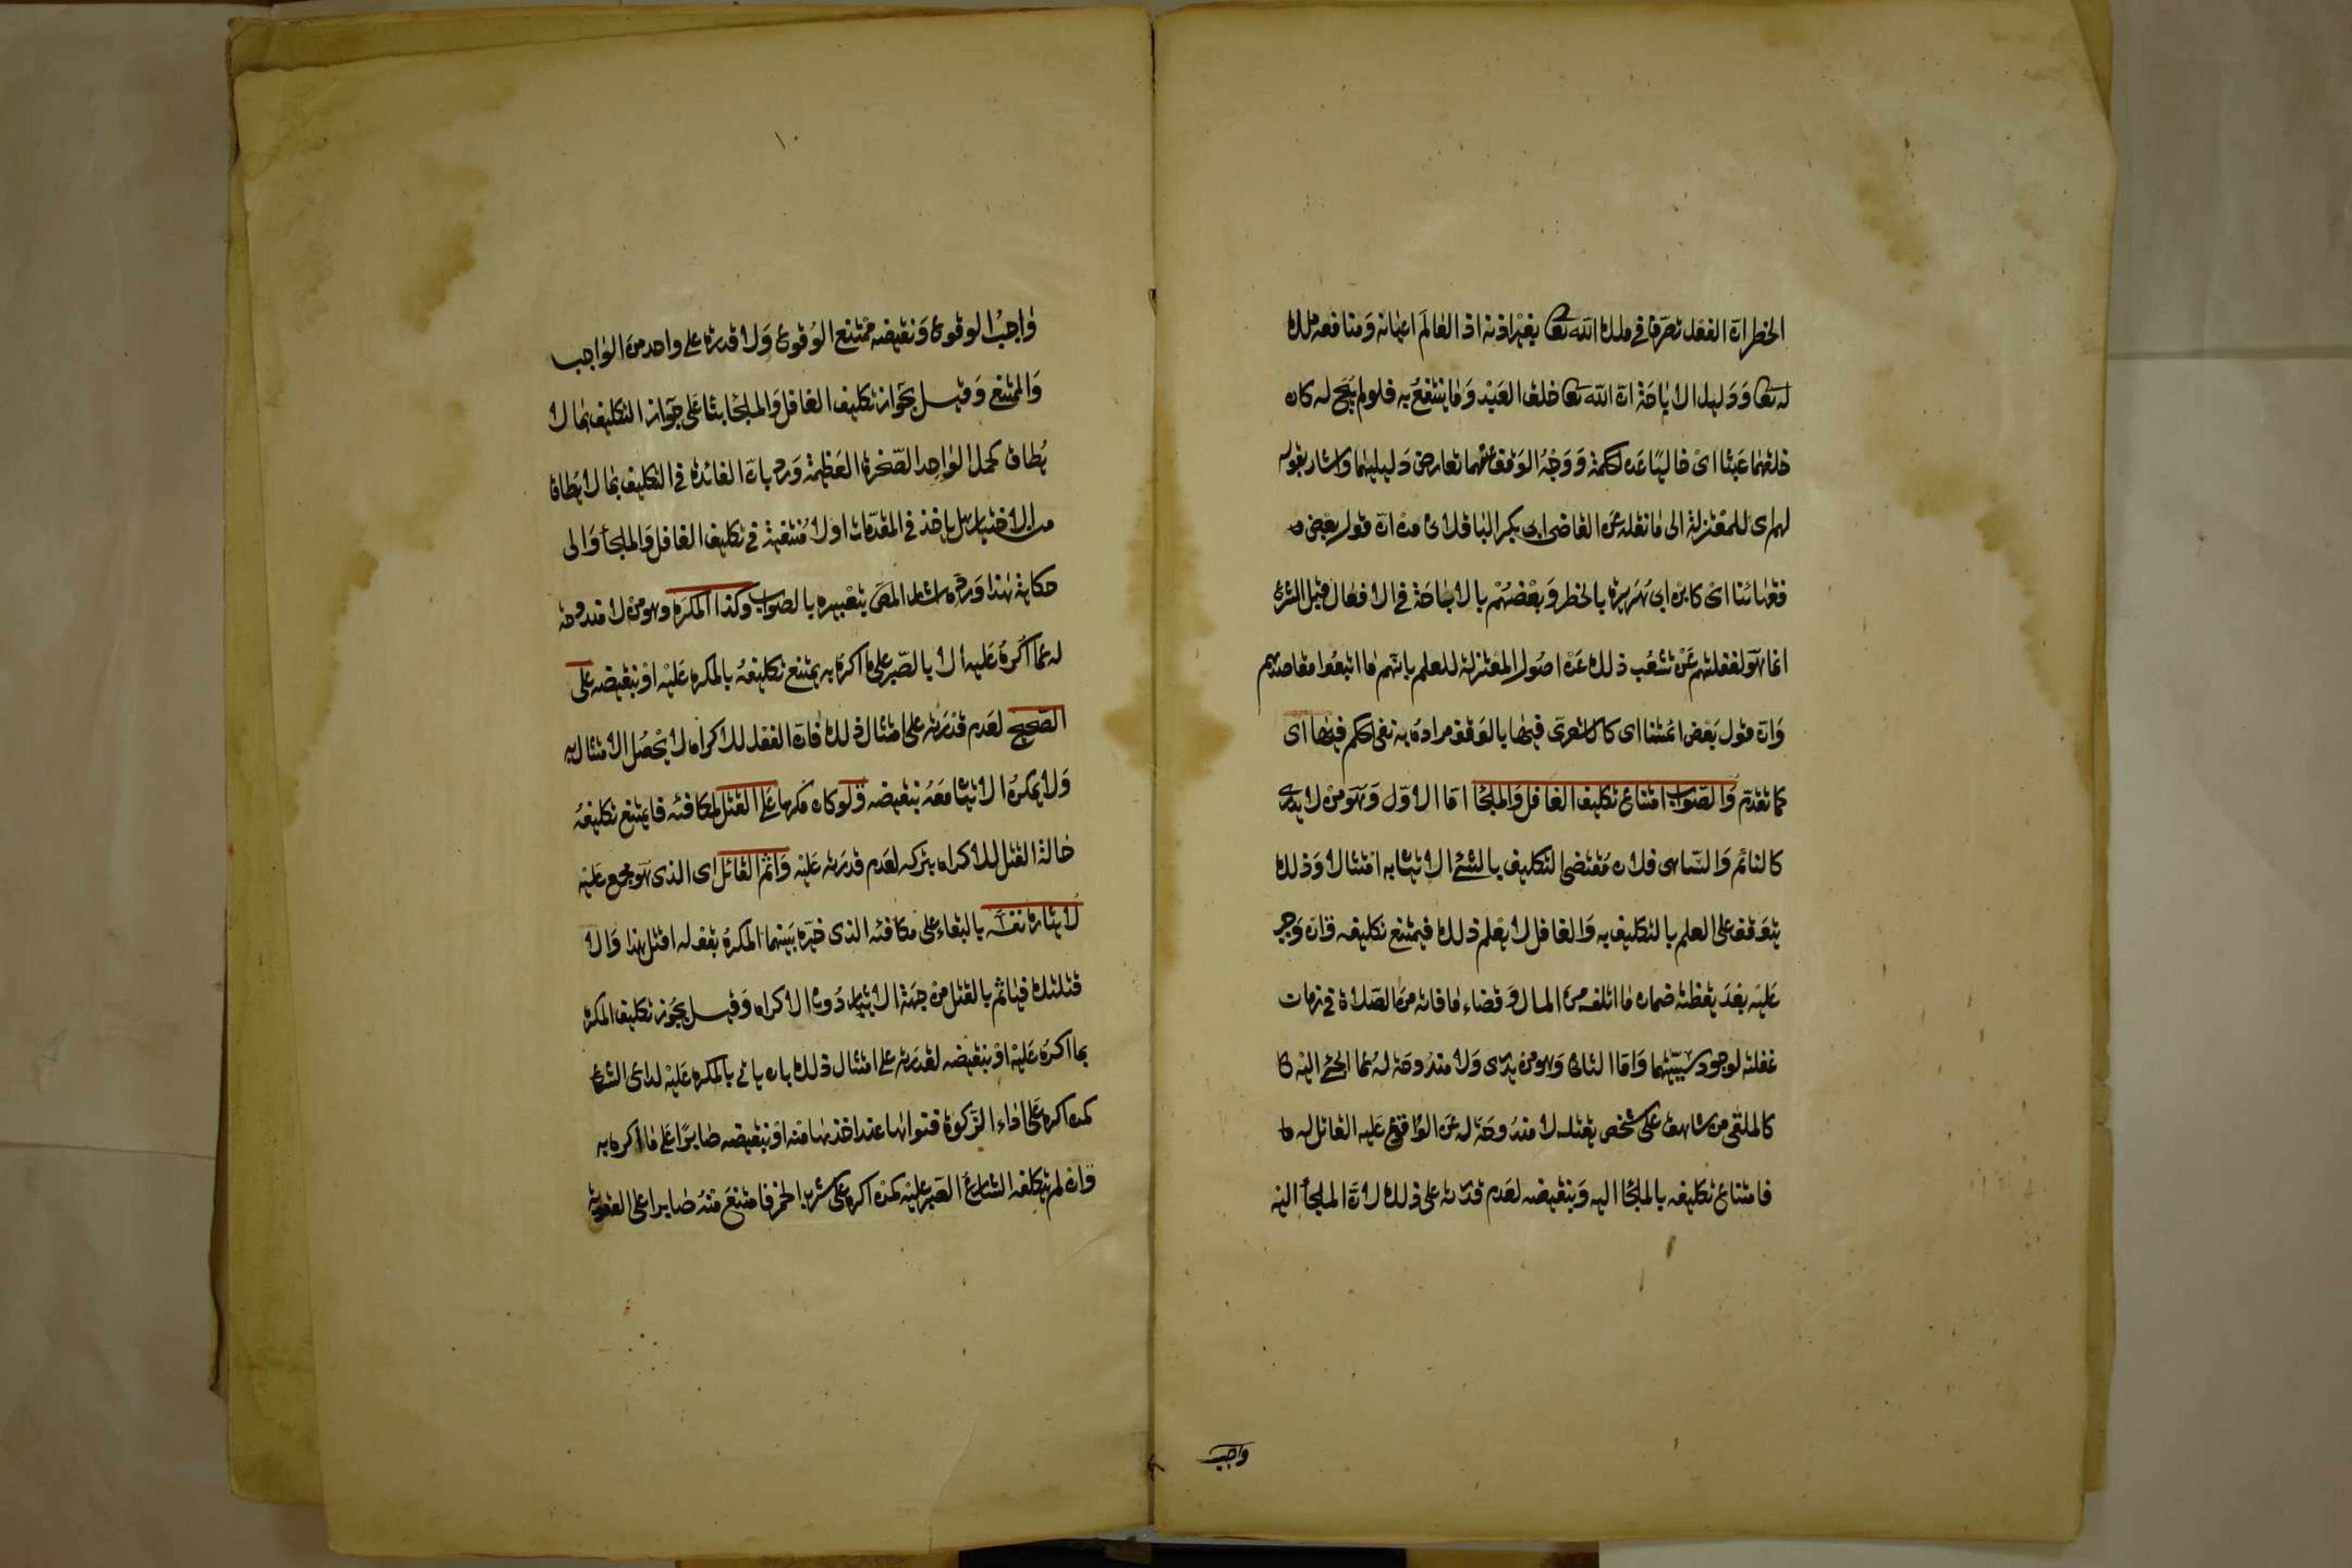 الحظر ان الفعل تصرف في ملك الله تعا بغير اذنه اذ العالم اعيانه ومنافعه ملك
له تعا ودليل الاباحة ان الله تعا خلق العبد وما ينتفع به فلو لم يبح له كان
خلقهما عبثا اى خاليا عن الحكمة ووجه الوقف عنهما تعارض دليليهما واشار بقوله
لهم اى للمعتزلة الى ما نقله عن القاضى ابى بكر الباقلانى من ان قول بعض
فقهائنا اى كابن ابى هريرة بالحظر وبعضهم بالاباحة فى الافعال قبل الشرع
انما هو لغفلتهم عن تشعب ذلك عن اصول المعتزلة للعلم بانهم ما اتبعوا مقاصدهم
وان قول بعض ائمتنا اى كالاشعرى فيها بالوقف مراده به نفى الحكم فيها اى
كما تقدم والصواب امتناع تكليف الغافل والملجأ اما الاول وهو من لا يدرى
كالنائم والساهى فلان مقتضى التكليف بالشئ الاتيان به امتثالا وذلك
يتوقف على العلم بالتكليف به والغافل لا يعلم ذلك فيمتنع تكليفه وان وجب
عليه بعد يقظته ضمان ما اتلفه من المال وقضاء ما فاته من الصلاة فى زمان
غفلته لوجود سببهما واما الثانى وهو من يدرى ولا مندوحة له عما الجئ اليه كا
كالملقى من شاهق على شخص يقتله لا مندوحة له عن الوقوع عليه القاتل له
فامتناع تكليفه بالملجأ اليه وبنقيضه لعدم قدرته على ذلك لان الملجأ اليه
واجب
١٠
واجب الوقوع ونقيضه ممتنع الوقوع ولا قدرة على واحد من الواجب
والممتنع وقيل بجواز تكليف الغافل والملجأ بناء على جواز التكليف بما لا
يطاق كحمل الواحد الصخرة العظيمة ورد بان الفائدة فى التكليف بما لا يطاق
من الاختبار هل ياخذ فى المقدمات او لا منتفية فى تكليف الغافل والملجأ والى
حكاية هذا ورده اشار المص بتعبيره بالصواب وكذا المكره وهو من لا مندوحة
له عما اكره عليه الا بالصبر على ما اكره به يمتنع تكليفه بالمكره عليه او بنقيضه على
الصحيح لعدم قدرته على امتثال ذلك فان الفعل للاكراه لا يحصل الامتثال به
ولا يمكن الاتيان معه بنقيضه ولو كان مكرها على القتل لمكافئه فانه يمتنع تكليفه
حالة القتل للاكراه بتركه لعدم قدرته عليه واثم القاتل اى الذى هو مجمع عليه
لايثاره نفسه بالبقاء على مكافئه الذى خيره بينهما المكره بقوله اقتل هذا والا
قتلتك فياثم بالقتل من جهة الايثار دون الاكراه وقيل يجوز تكليف المكره
بما اكره عليه او بنقيضه لقدرته على امتثال ذلك بان ياتى بالمكره عليه لداعى الشرع
كمن اكره على اداء الزكوة فنواها عند اخذها منه او بنقيضه صابرا على ما اكره به
وان لم يكلفه الشارع الصبر عليه كمن اكره على شرب الخمر فامتنع منه صابرا على العقوبة